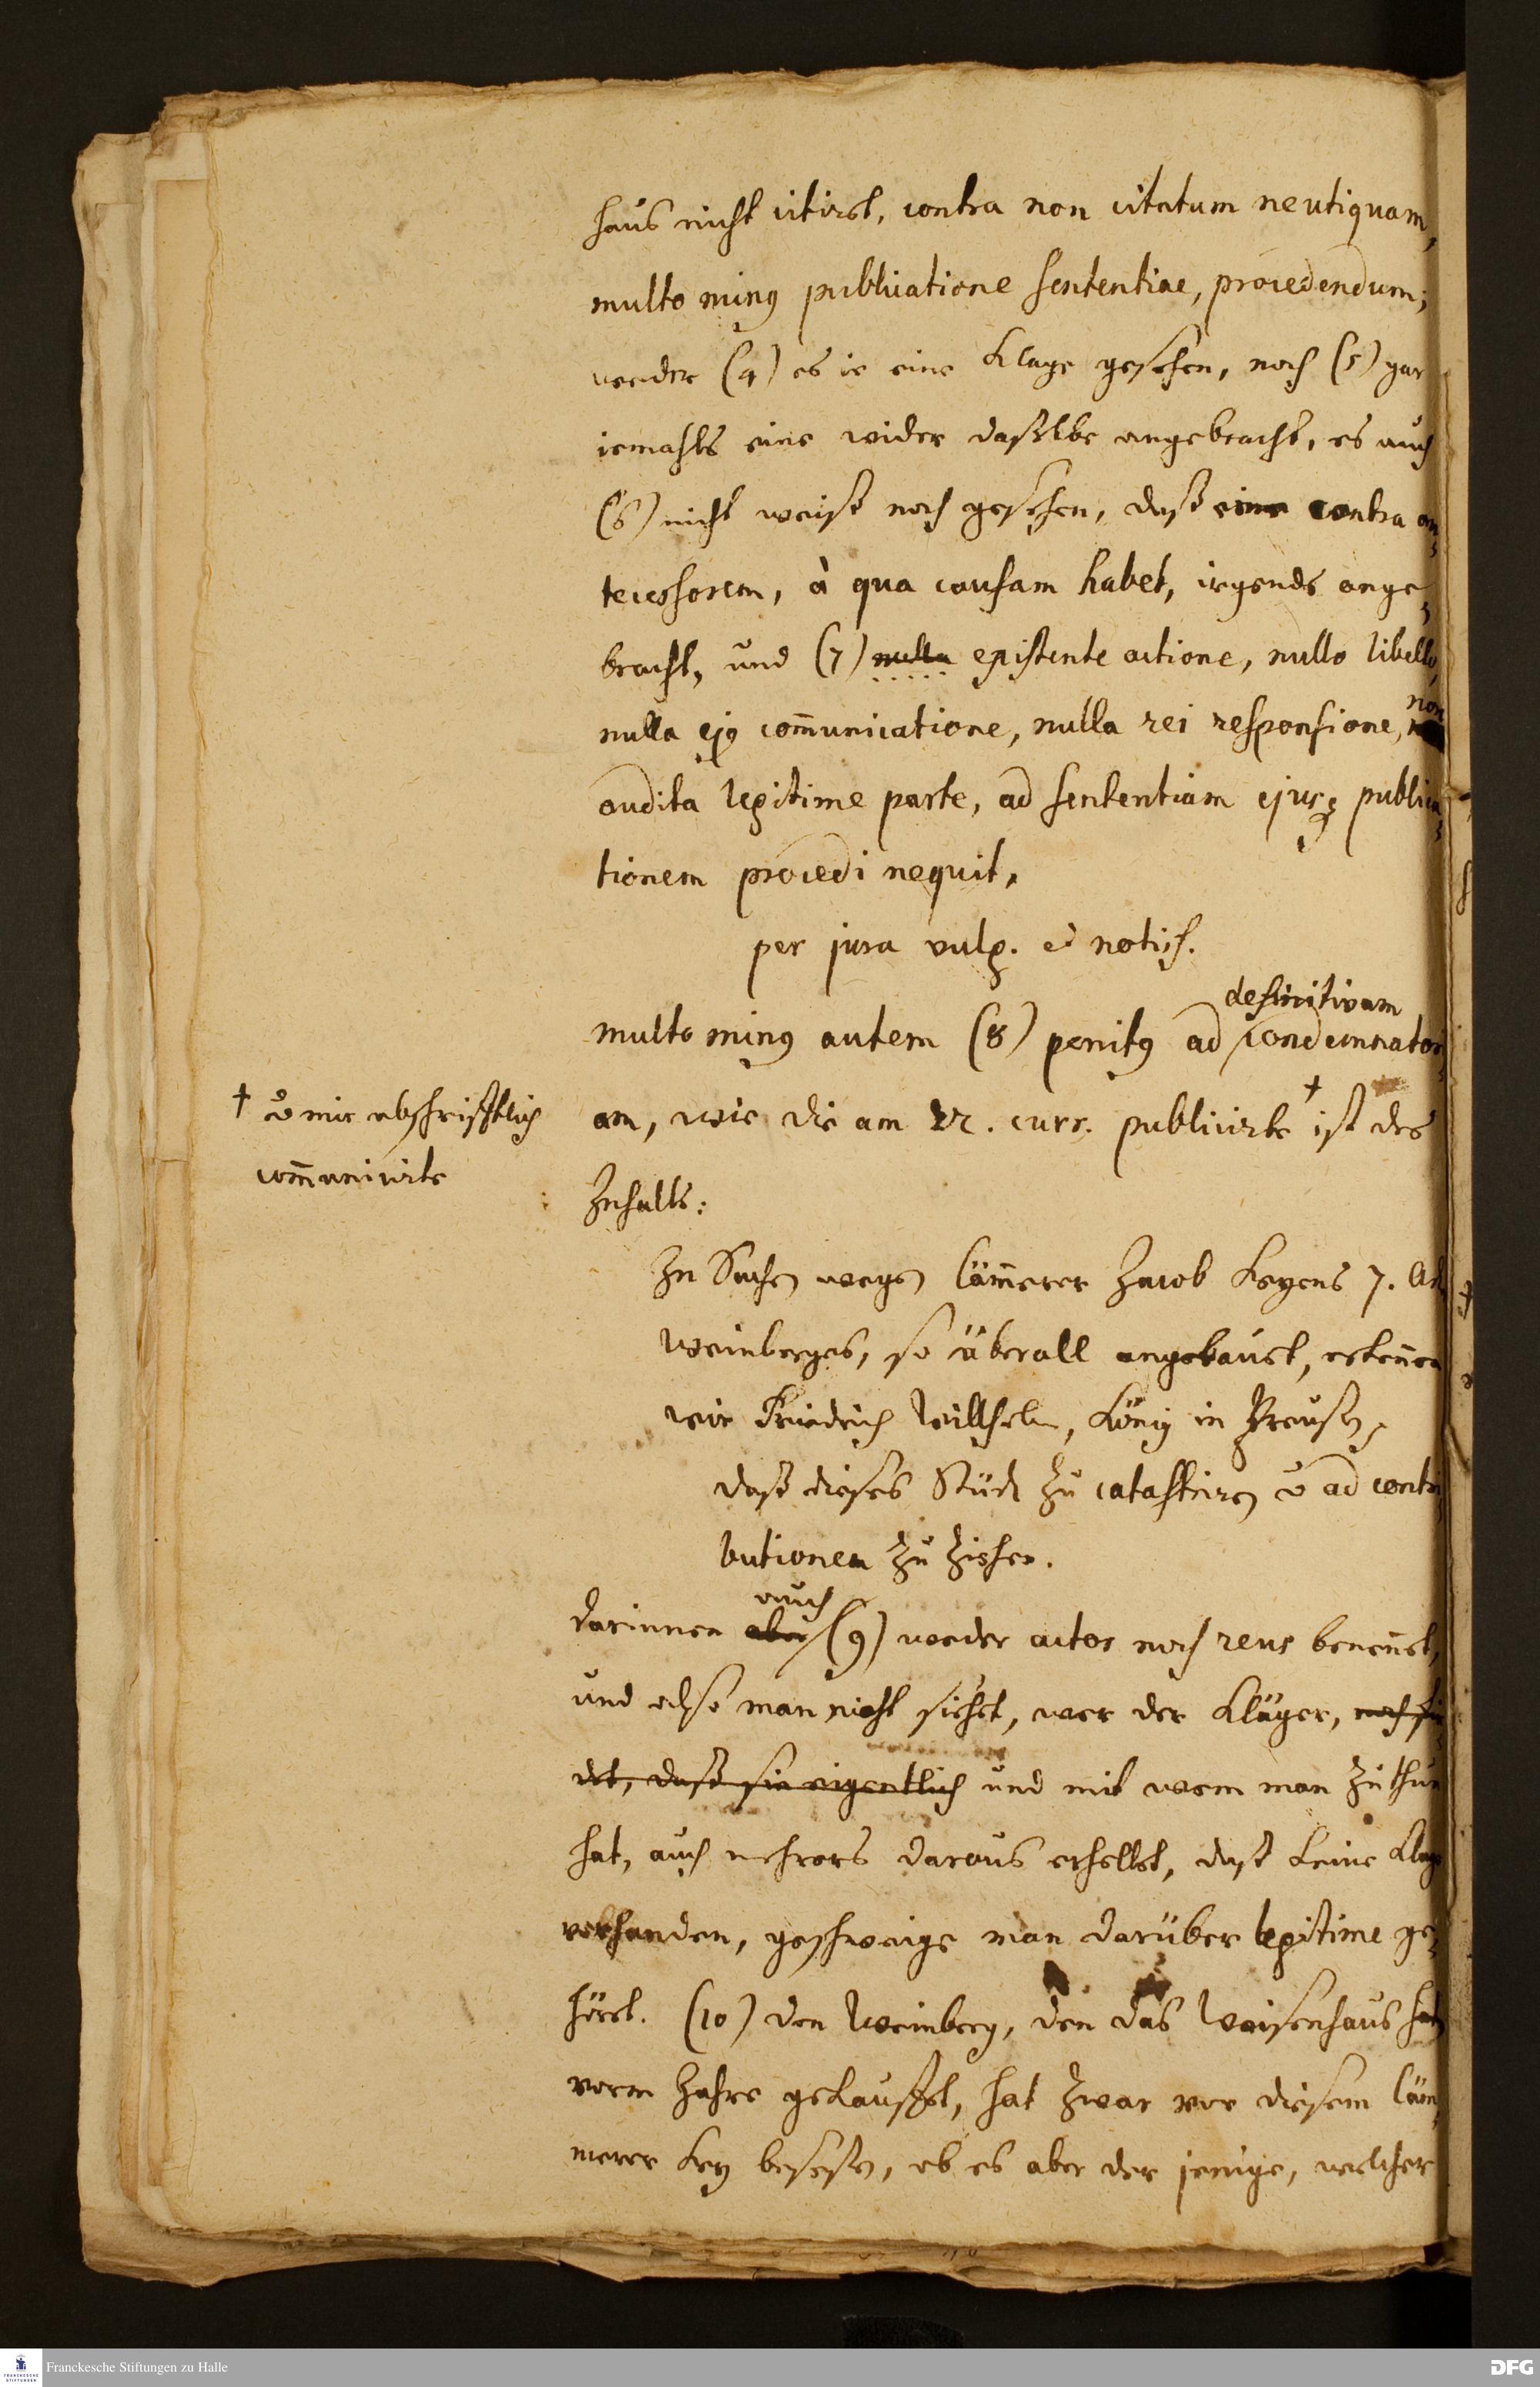 haus nicht citiret, contra non citatum neutiquam,
multo minus publicatione sententiae, procedendum;
weder (4) es ie eine Klage gesehen, noch (5) gar
iemahls eine wider dasselbe angebracht, es auch
(6) nicht weiß noch gesehen, daß eine contra an-
tecessorem, à qua causam habet, irgends ange-
bracht, und (7) nulla existente actione, nullo libello,
nulla ejus com̄unicatione, nulla rei responsione, non
audita legitime parte, ad sententiam ejusq; publica-
tionem procedi nequit,
per jura vulg. et notiss.
definitivam
multo minus autem (8) penitus ad condemnatori-
† u mir abschrifftlich
com̄unicirte
am, wie die am 22. curr. publicirte † ist des
Inhalts:
In Sachen wegen Cäm̄erer Jacob Keyens 7. Ack
Weinberges, so überall angebauet, erken̄en
wir Friedrich Willhelm, König in Preußen,
daß dieses Stück zu catastriren u ad contri-
butionem zu ziehen.
auch
darinnen aber (9) weder actor noch reus benen̄et,
und also man nicht siehet, wer der Kläger, noch fin-
det, daß sie eigentlich und mit wem man zu thun
hat, auch mehrers daraus erhellet, daß keine Klage
vorhanden, geschweige man darüber legitime ge-
höret. (10) den Weinberg, den das Waisenhaus hat
vorm Jahre gekauffet, hat zwar vor diesem Cäm-
merer Key besessen, ob es aber der jenige, welcher
Franckesche Stiftungen zu Halle
DFG